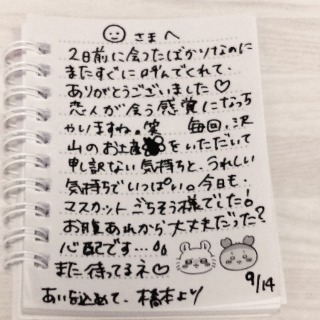 さまへ
2日前に会ったばかりなのに
またすぐに呼んでくれて、
ありがとうございました♡
恋人が会う感覚になっち
ゃいますね。笑 毎回、沢
山のお土産をいただいて
申し訳ない気持ちと、うれしい
気持ちでいっぱい。今日も、
マスカットごちそう様でした!
お腹あれから大丈夫だった?
心配です…
また待ってるネ♡
9/14
あい込めて、橋本より